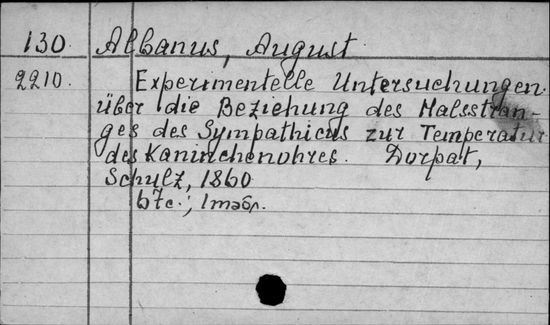 130. Albanus, August
2210. Experimentelle Untersuchungen
über die Beziehung des Halsstran-
ges des Sympathicus zur Temperatur
des Kaninchenohres. Dorpat,
Schulz, 1860
67c.; 1 табл.